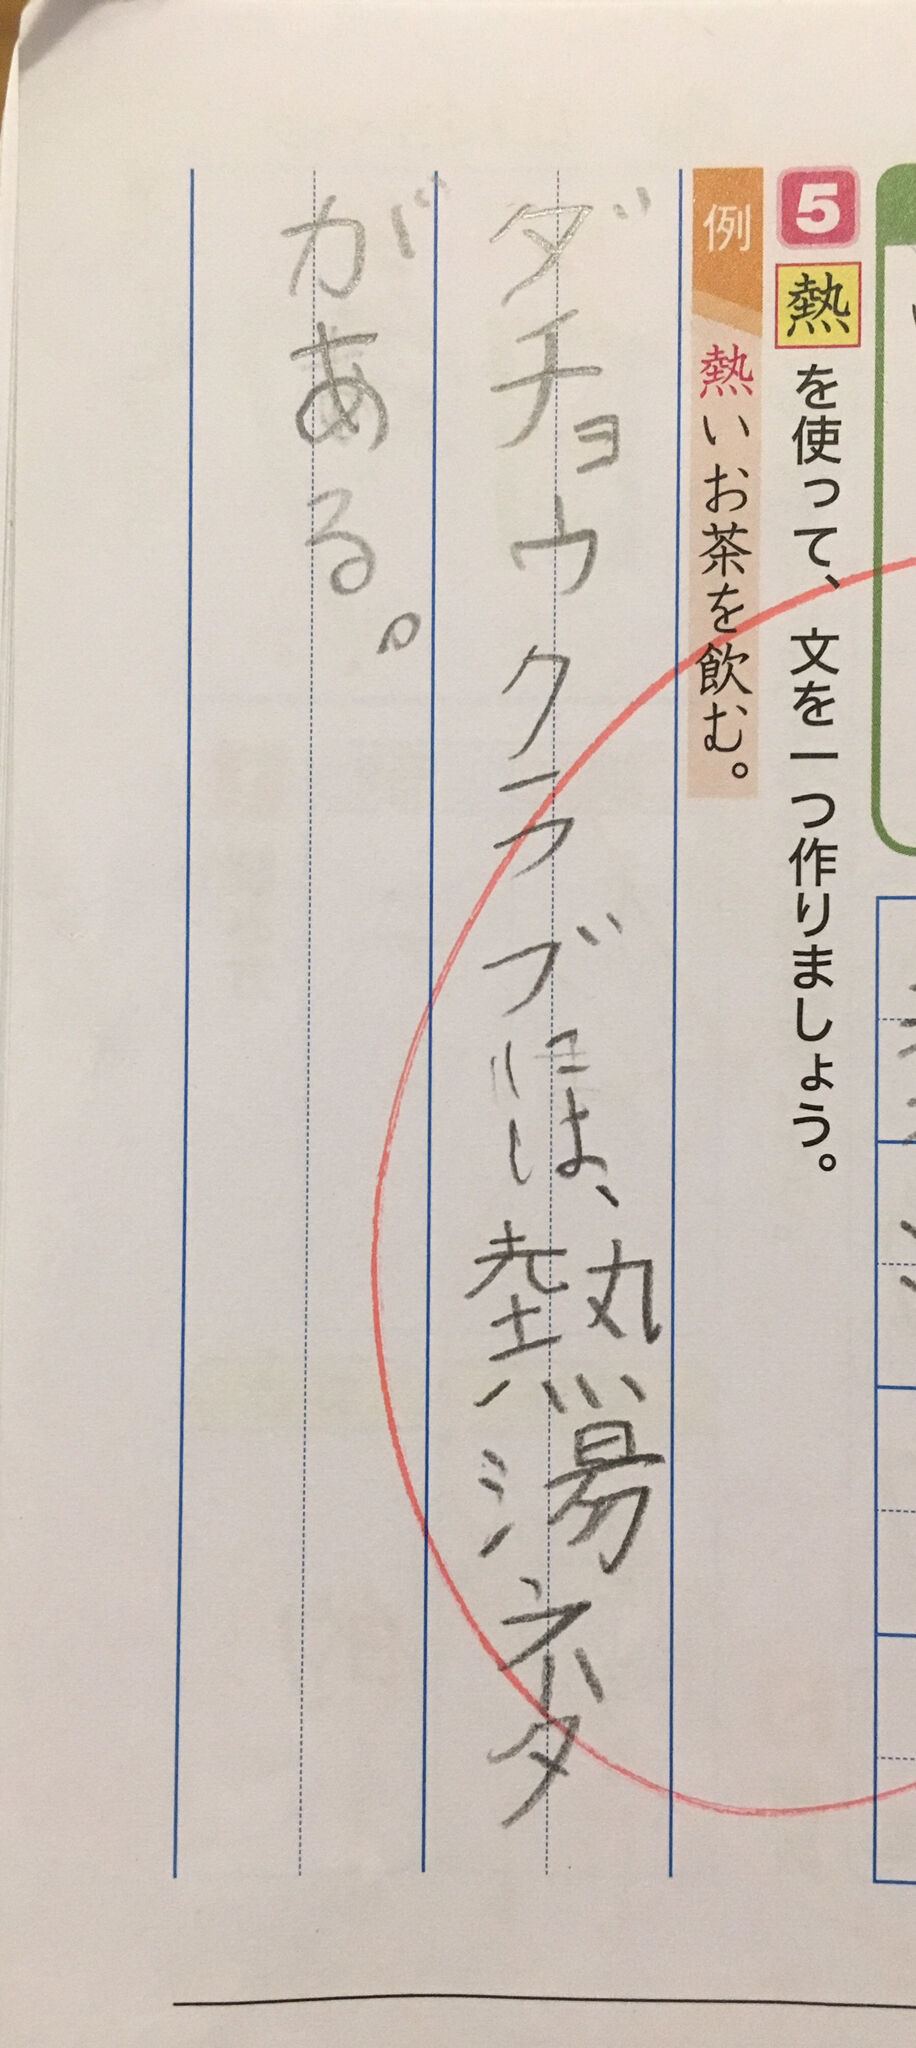 5 熱を使って、文を一つ作りましょう。
例 熱いお茶を飲む。
ダチョウクラブには、熱湯ネタ
がある。